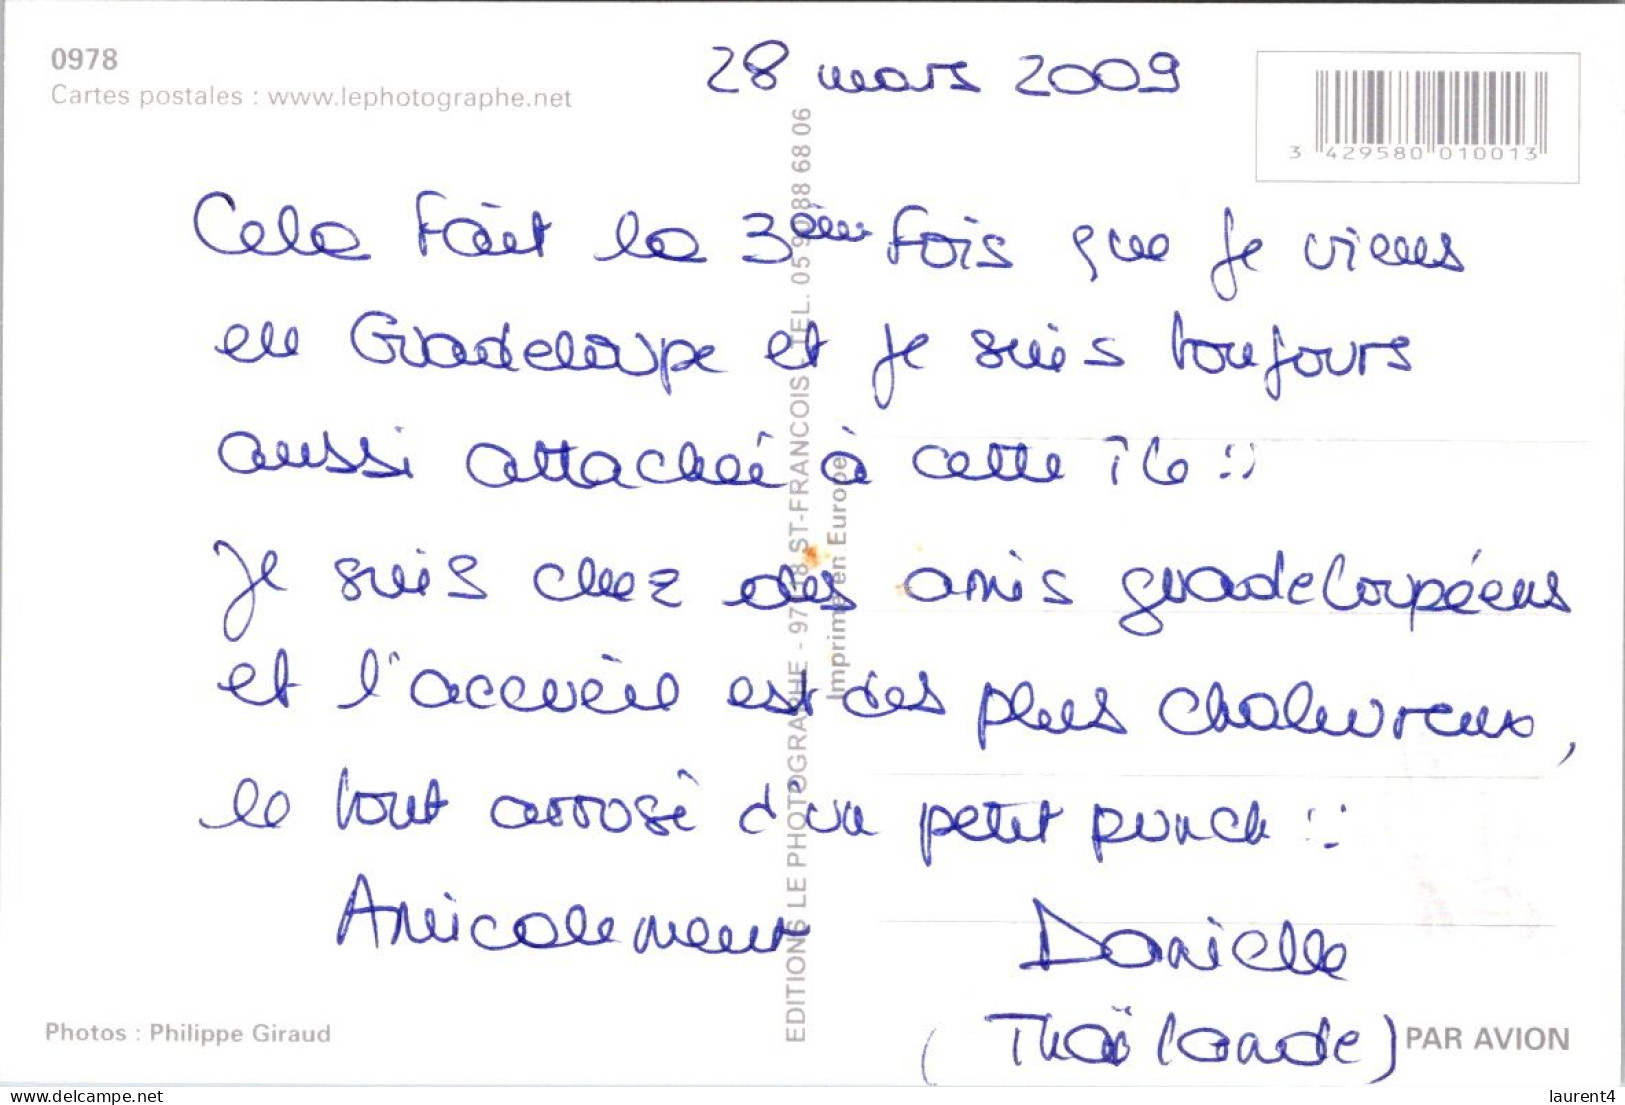 0978
Cartes postales : www.lephotographe.net
28 mars 2009
3 429580 010013
Cela fait la 3ème fois que je viens
en Guadeloupe et je suis toujours
aussi attachée à cette île !!
Je suis chez des amis guadeloupéens
et l'accueil est des plus chaleureux,
le tout arrosé d'un petit punch !!
Amicalement
Danielle
(Thaïlande)
EDITIONS LE PHOTOGRAPHE - 97118 ST-FRANCOIS - TEL. 05 90 88 68 06
Imprimé en Europe
Photos : Philippe Giraud
PAR AVION
delcampe.net
laurent4